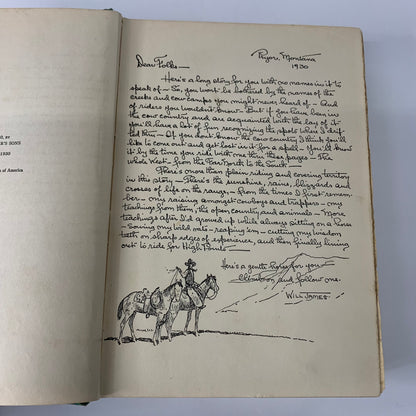 0, BY
ER'S SONS
1930
s of America
Pryor, Montana
1930
Dear Folks—
Here's a long story for you with no names in it to
speak of— So, you wont be bothered by the names of the
creeks and cow camps you might never heard of— And
of riders you wouldnt know— But if you have been in
the cow country and are acquainted with the lay of it
you'll have a lot of fun recognizing the spots where I drif-
ted thru— If you dont know the cow country I think you'd
like to come out and get lost in it for a spell— You'll know
it by the time you ride with me thru these pages— The
whole West— from the Far North to the South—
There's more than plain riding and covering territory
in this story— There's the sunshine, rains, blizzards and
crosses of life on the range— from the times I first remem-
ber— my raising amongst cowboys and trappers— my
teachings from them, the open country and animals— More
teachings after I'd growed up while always sitting on a horse
— Sowing my wild oats— reaping 'em— cutting my wisdom
teeth on sharp edges of experience, and then finally lining
out to ride for High Points—
Here's a gentle horse for you
Climb on and follow me.
WILL JAMES—